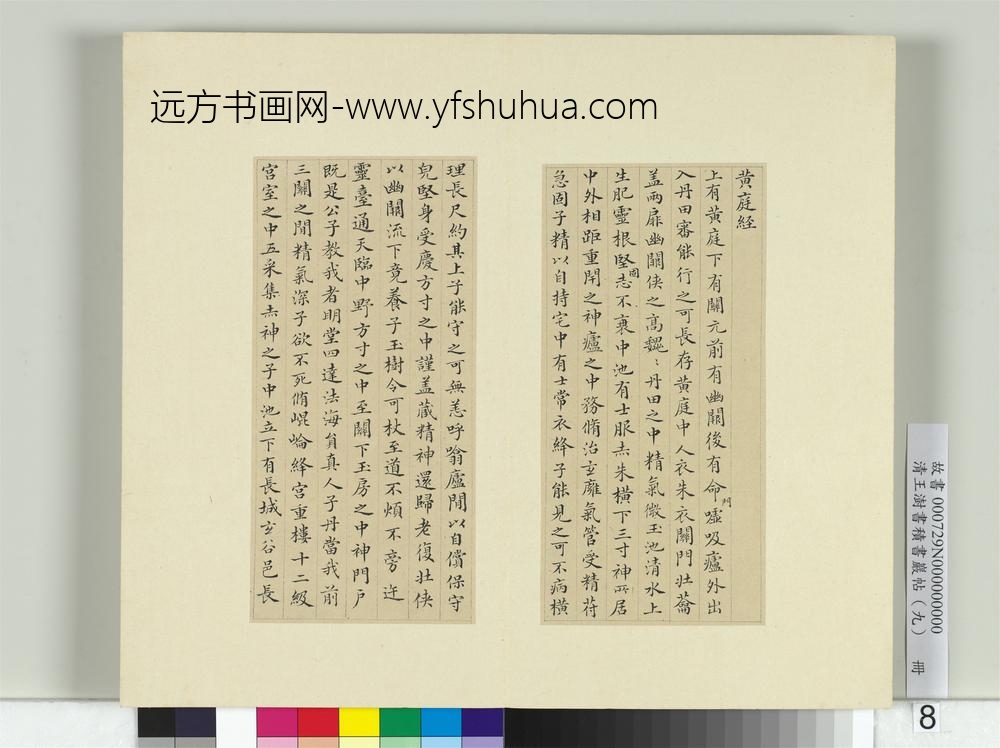 远方书画网-www.yfshuhua.com
黄庭経
上有黄庭下有關元前有幽闕後有命門噓吸廬外出
入丹田審能行之可長存黄庭中人衣朱衣關門壮蘥
盖兩扉幽闕侠之髙魏〻丹田之中精氣微玉池清水上
生肥靈根堅固志不衰中池有士服赤朱橫下三寸神所居
中外相距重閉之神廬之中務脩治玄廱氣管受精苻
急固子精以自持宅中有士常衣絳子能見之可不病橫
理長尺約其上子能守之可無恙呼噏廬間以自償保守
皃堅身受慶方寸之中謹盖藏精神還歸老復壮侠
以幽闕流下竟養子玉樹令可杖至道不煩不旁迕
靈臺通天臨中野方寸之中至關下玉房之中神門户
既是公子教我者明堂四達法海負真人子丹當我前
三關之間精氣深子欲不死脩崐崘絳宫重樓十二級
宫室之中五采集赤神之子中池立下有長城玄谷邑長
故書 000729N000000000
清王澍書積書巖帖（九） 冊
8